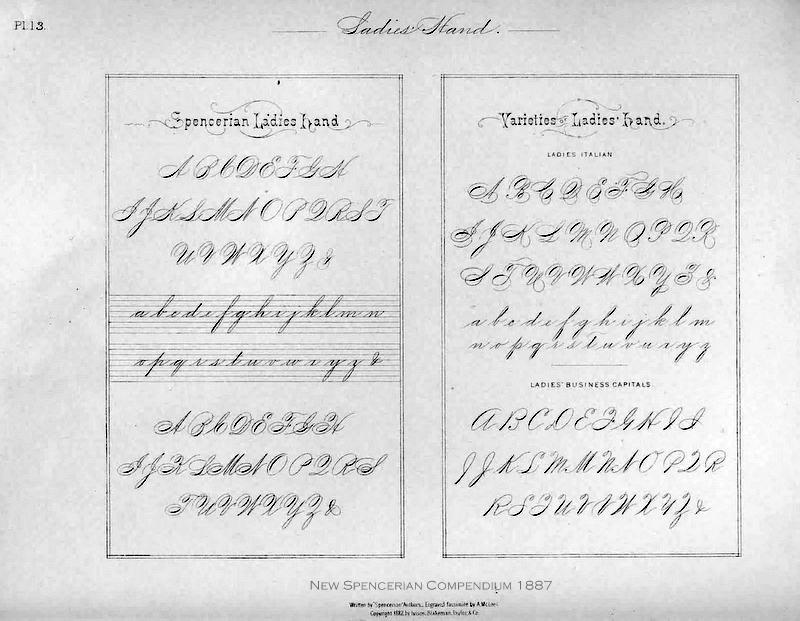 Pl.13.
Ladies' Hand.
Spencerian Ladies Hand
A B C D E F G H
I J K L M N O P Q R S T
U V W X Y Z &
a b c d e f g h i j k l m n
o p q r s t u v w x y z &
A B C D E F G H
I J K L M N O P Q R S
T U V W X Y Z &
Varieties of Ladies' Hand.
LADIES ITALIAN
A B C D E F G H
I J K L M N O P Q R
S T U V W X Y Z &
a b c d e f g h i j k l m
n o p q r s t u v w x y z
LADIES' BUSINESS CAPITALS.
A B C D E F G H I J
J K L M M N N O P Q R
R S T U V V W X Y Z &
NEW SPENCERIAN COMPENDIUM 1887
Written by "Spencerian" Authors. Engraved facsimile by A. McLees
Copyright 1882, by Ivison, Blakeman, Taylor, & Co.